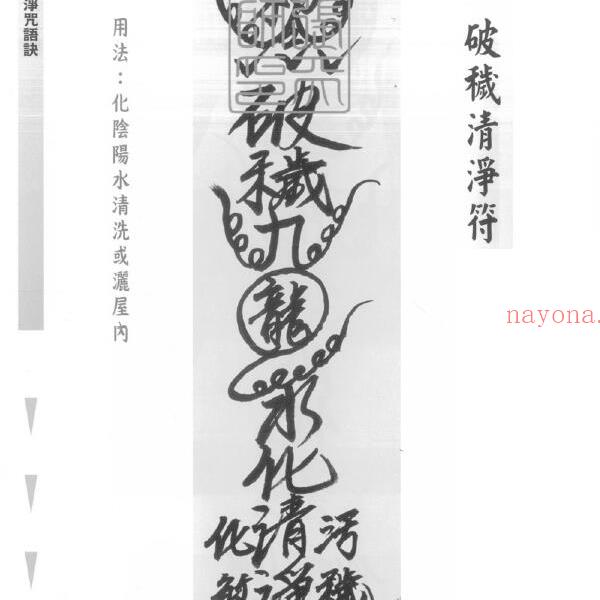 破穢清淨符
破穢九龍水化清淨
污穢
化
用法：化陰陽水清洗或灑屋內
淨咒語訣
nayona.